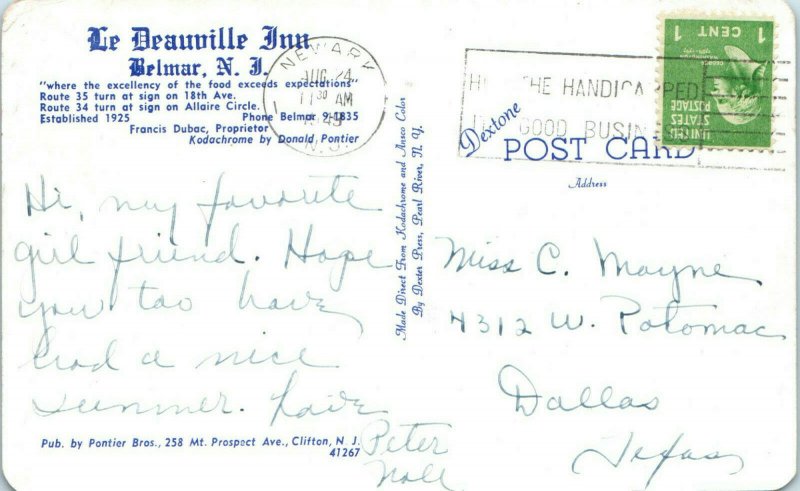 Le Deauville Inn
Belmar, N. J.
"where the excellency of the food exceeds expectations"
Route 35 turn at sign on 18th Ave.
Route 34 turn at sign on Allaire Circle.
Established 1925 Phone Belmar 9-1835
Francis Dubac, Proprietor
Kodachrome by Donald Pontier
NEWARK
AUG 24
11 30 AM
N. J.
THE HANDICAPPED
GOOD BUSINESS
1 CENT 1
UNITED
STATES
POSTAGE
Dextone
POST CARD
Address
Made Direct From Kodachrome and Ansco Color
By Dexter Press, Pearl River, N. Y.
Hi, my favorite
girl friend. Hope
you too have
had a nice
summer. Love
Peter
Noll
Miss C. Mayne
4312 W. Potomac
Dallas
Texas
Pub. by Pontier Bros., 258 Mt. Prospect Ave., Clifton, N. J.
41267